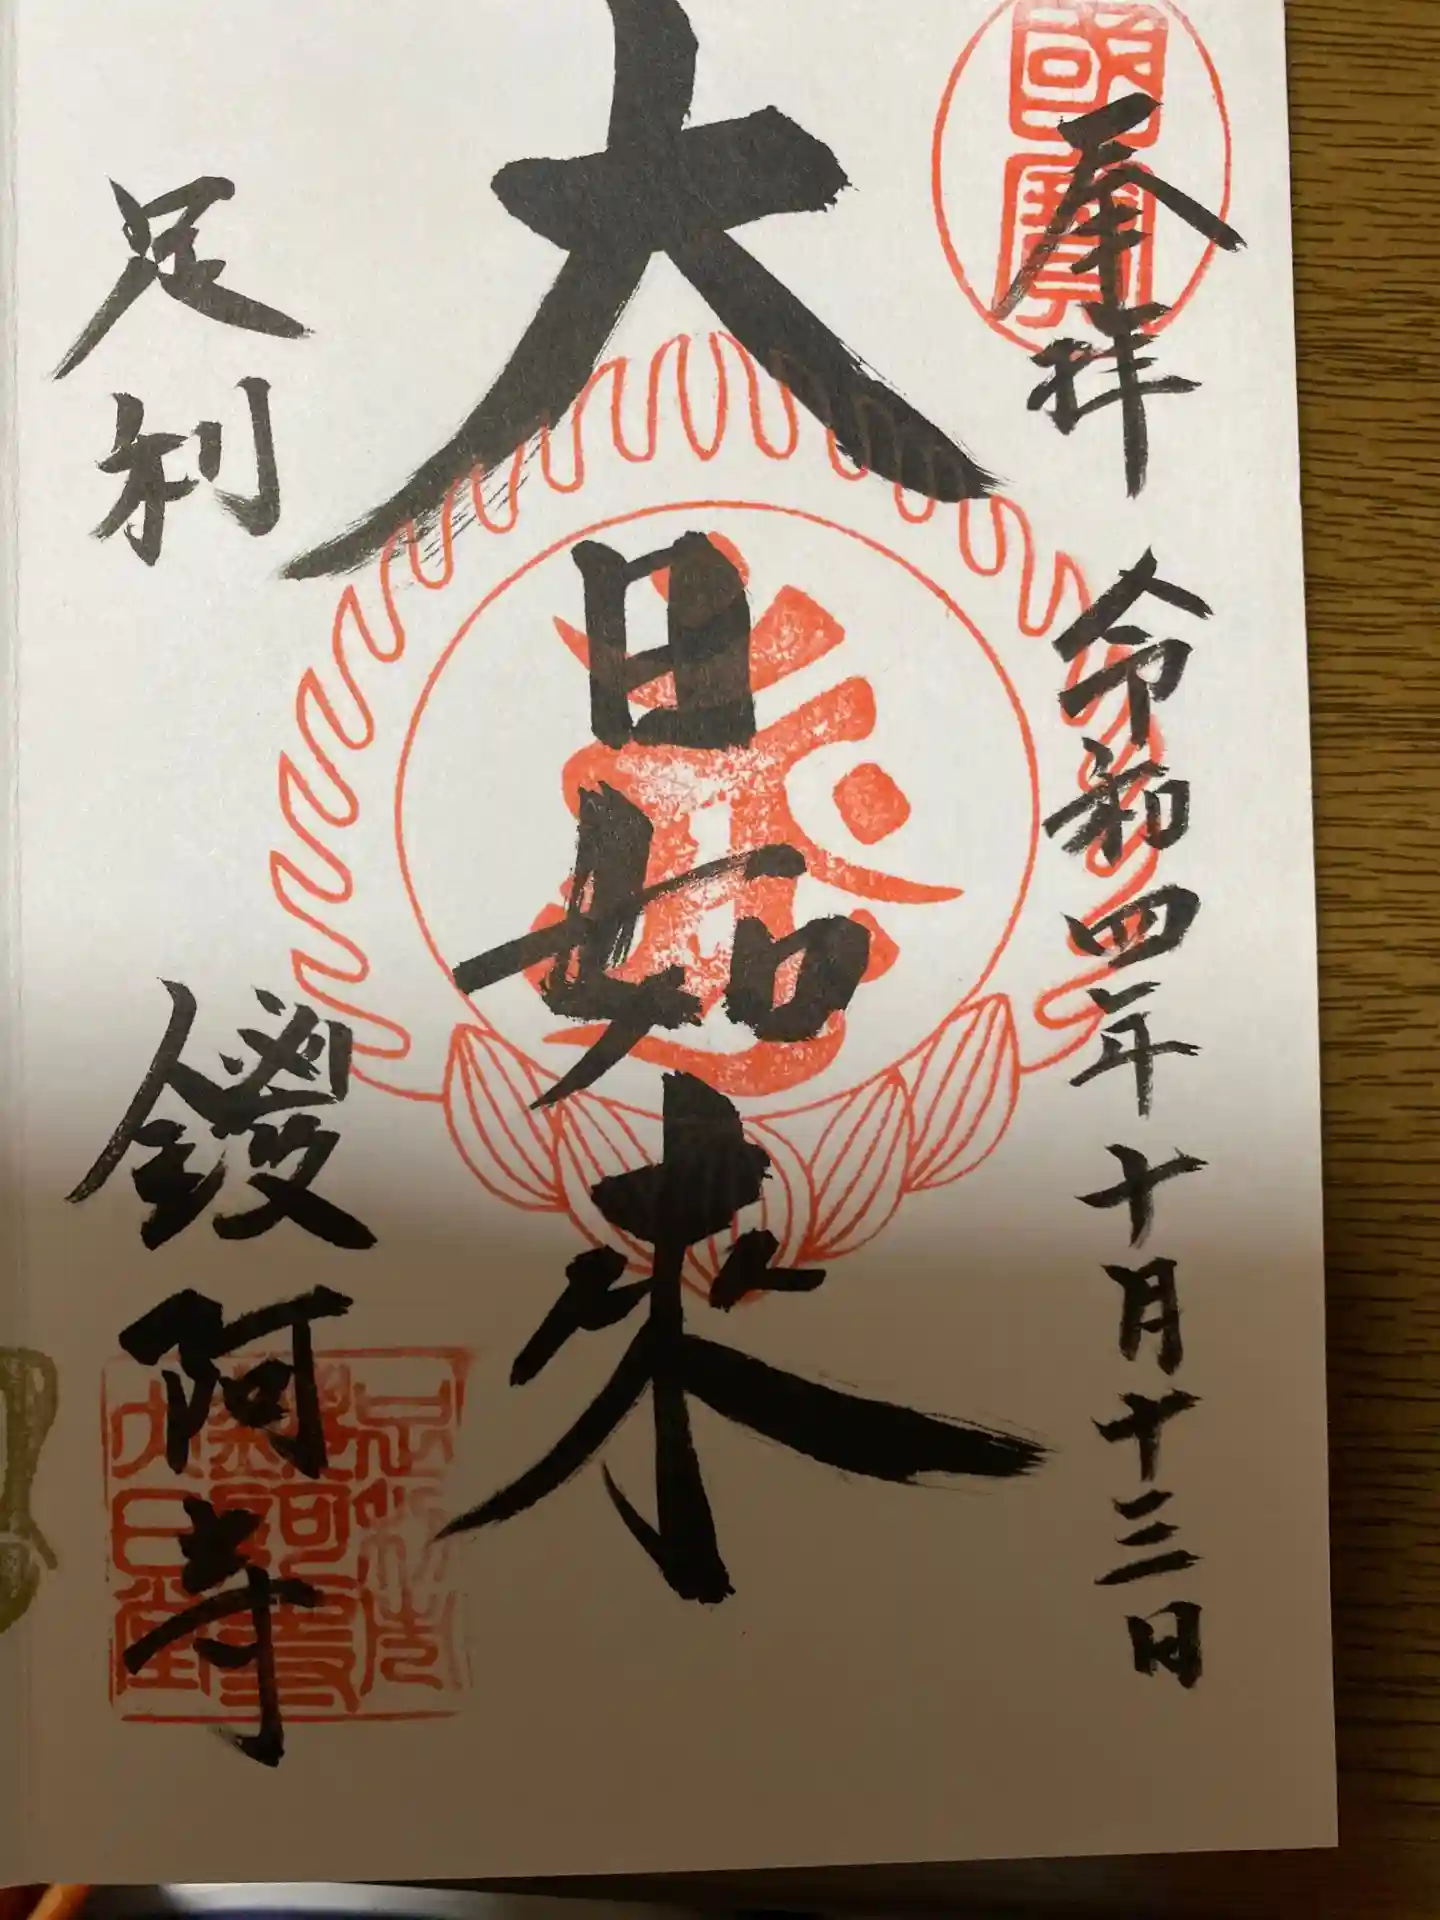 奉拝
令和四年十月十三日
大日如来
足利
鑁阿寺
國寳
足利市
鑁阿寺
大日堂